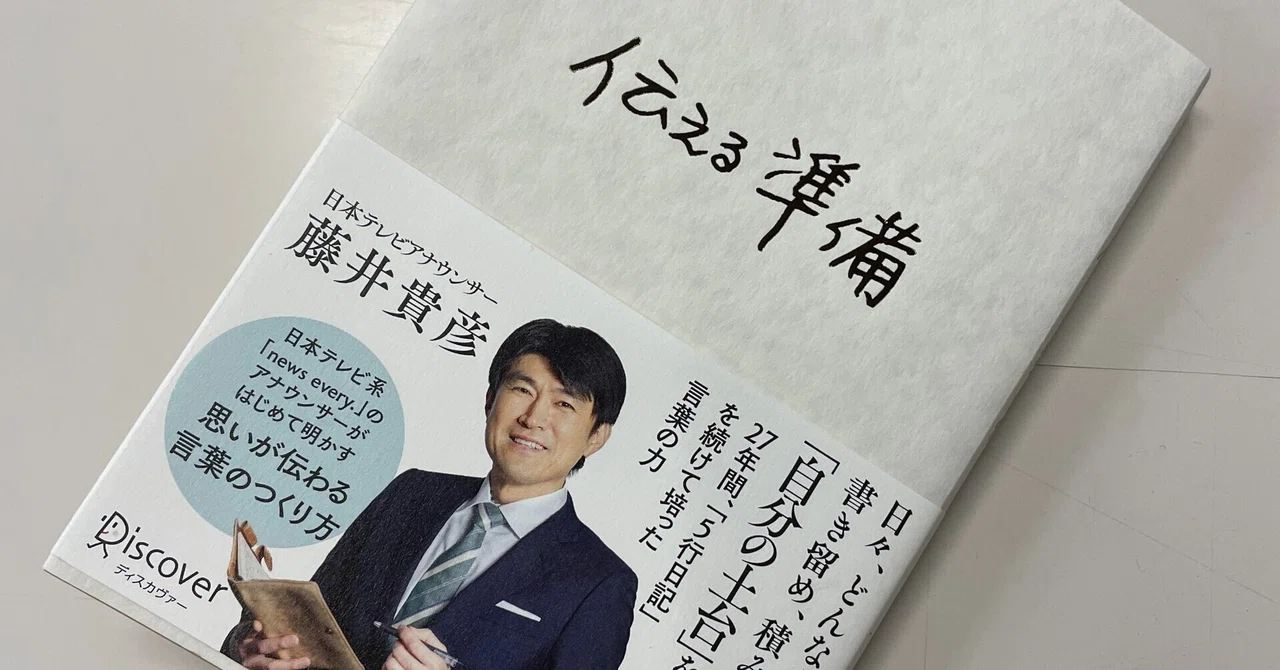 伝える準備
日本テレビアナウンサー
藤井貴彦
日本テレビ系
「news every.」の
アナウンサーが
はじめて明かす
思いが伝わる
言葉のつくり方
日々、どんな
書き留め、積み
「自分の土台」を
27年間、「5行日記」
を続けて培った
言葉の力
Discover
ディスカヴァー